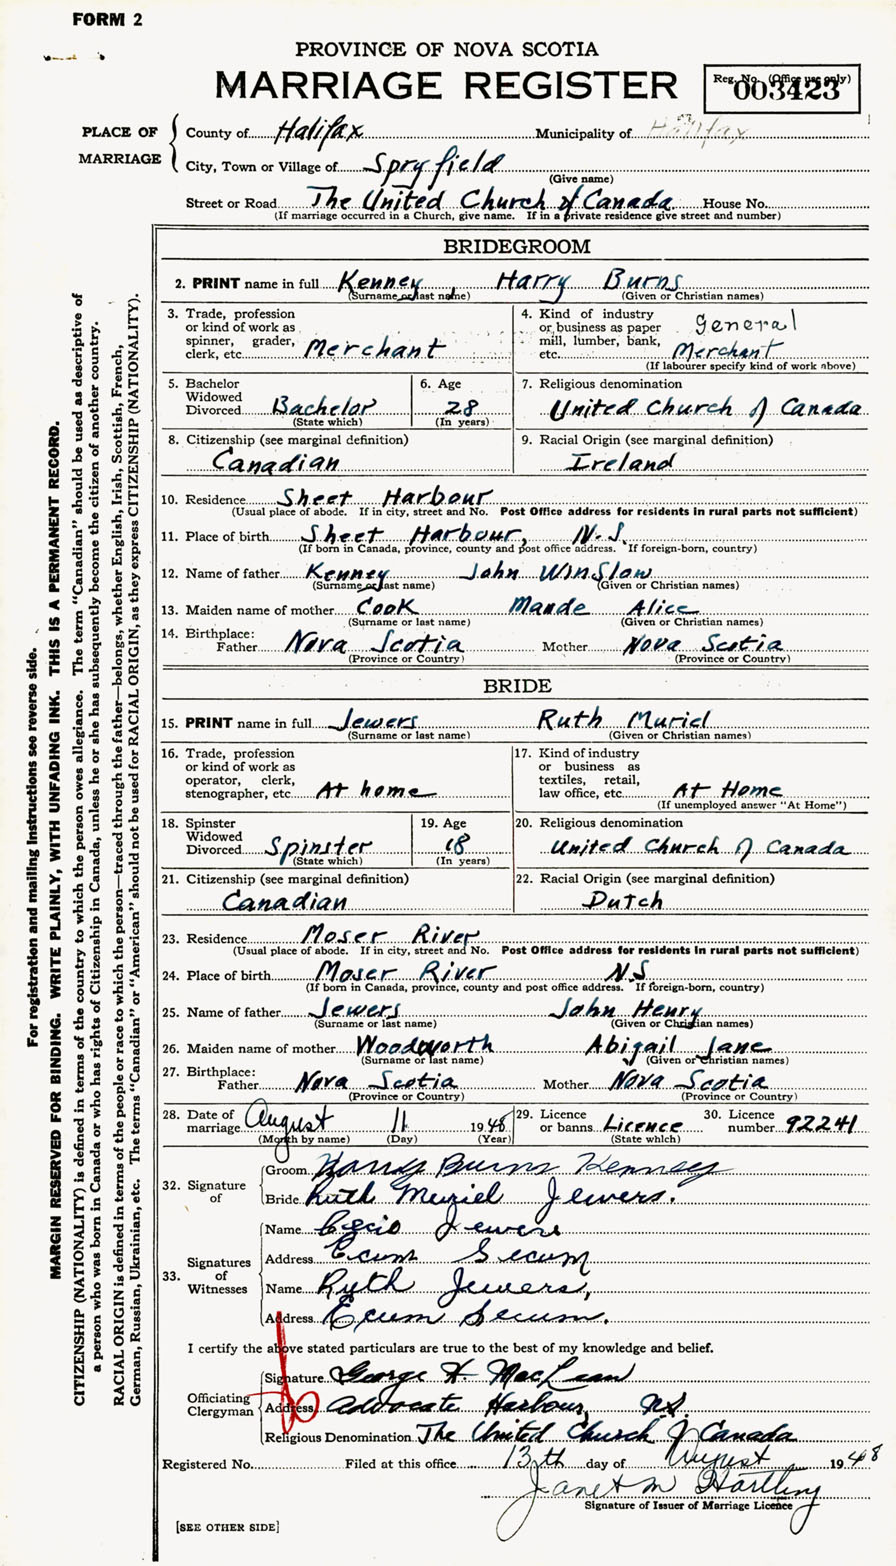 FORM 2
PROVINCE OF NOVA SCOTIA
MARRIAGE REGISTER
Reg. No. (Office use only)
003423
PLACE OF MARRIAGE
County of Halifax Municipality of Halifax
City, Town or Village of Spryfield
(Give name)
Street or Road The United Church of Canada House No.
(If marriage occurred in a Church, give name. If in a private residence give street and number)
BRIDEGROOM
2. PRINT name in full Kenney Harry Burns
(Surname or last name) (Given or Christian names)
3. Trade, profession or kind of work as spinner, grader, clerk, etc. Merchant
4. Kind of industry or business as paper mill, lumber, bank, etc. General Merchant
(If labourer specify kind of work above)
5. Bachelor Widowed Divorced Bachelor
(State which)
6. Age 28
(In years)
7. Religious denomination
United Church of Canada
8. Citizenship (see marginal definition)
Canadian
9. Racial Origin (see marginal definition)
Ireland
10. Residence Sheet Harbour
(Usual place of abode. If in city, street and No. Post Office address for residents in rural parts not sufficient)
11. Place of birth Sheet Harbour, N.S.
(If born in Canada, province, county and post office address. If foreign-born, country)
12. Name of father Kenney John Winslow
(Surname or last name) (Given or Christian names)
13. Maiden name of mother Cook Maude Alice
(Surname or last name) (Given or Christian names)
14. Birthplace:
Father Nova Scotia Mother Nova Scotia
(Province or Country) (Province or Country)
BRIDE
15. PRINT name in full Jewers Ruth Muriel
(Surname or last name) (Given or Christian names)
16. Trade, profession or kind of work as operator, clerk, stenographer, etc. At home
17. Kind of industry or business as textiles, retail, law office, etc. At Home
(If unemployed answer "At Home")
18. Spinster Widowed Divorced Spinster
(State which)
19. Age 18
(In years)
20. Religious denomination
United Church of Canada
21. Citizenship (see marginal definition)
Canadian
22. Racial Origin (see marginal definition)
Dutch
23. Residence Moser River
(Usual place of abode. If in city, street and No. Post Office address for residents in rural parts not sufficient)
24. Place of birth Moser River N.S
(If born in Canada, province, county and post office address. If foreign-born, country)
25. Name of father Jewers John Henry
(Surname or last name) (Given or Christian names)
26. Maiden name of mother Woodworth Abigail Jane
(Surname or last name) (Given or Christian names)
27. Birthplace:
Father Nova Scotia Mother Nova Scotia
(Province or Country) (Province or Country)
28. Date of marriage August 11 1948
(Month by name) (Day) (Year)
29. Licence or banns Licence
(State which)
30. Licence number 92241
32. Signature of
Groom Harry Burns Kenney
Bride Ruth Muriel Jewers.
33. Signatures of Witnesses
Name Jewers
Address Ecum Secum
Name Ruth Jewers,
Address Ecum Secum.
I certify the above stated particulars are true to the best of my knowledge and belief.
Officiating Clergyman
Signature George H. MacLean
Address Advocate Harbour, N.S.
Religious Denomination The United Church of Canada
Registered No. Filed at this office 13th day of August 1948
Janet M Hartling
Signature of Issuer of Marriage Licence
[SEE OTHER SIDE]
For registration and mailing instructions see reverse side.
MARGIN RESERVED FOR BINDING. WRITE PLAINLY, WITH UNFADING INK. THIS IS A PERMANENT RECORD.
CITIZENSHIP (NATIONALITY) is defined in terms of the country to which the person owes allegiance. The term "Canadian" should be used as descriptive of
a person who was born in Canada or who has rights of Citizenship in Canada, unless he or she has subsequently become the citizen of another country.
RACIAL ORIGIN is defined in terms of the people or race to which the person—traced through the father—belongs, whether English, Irish, Scottish, French,
German, Russian, Ukrainian, etc. The terms "Canadian" or "American" should not be used for RACIAL ORIGIN, as they express CITIZENSHIP (NATIONALITY).